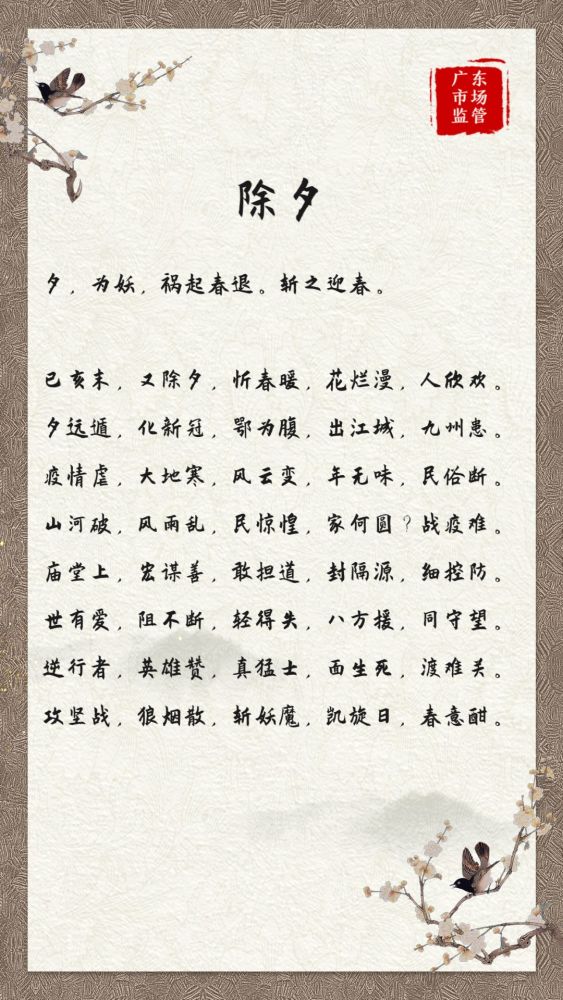 广东
市场
监管
除夕
夕，为妖，祸起春退。斩之迎春。
己亥末，又除夕，忻春暖，花烂漫，人欣欢。
夕远遁，化新冠，鄂为腹，出江城，九州患。
疫情虐，大地寒，风云变，年无味，民俗断。
山河破，风雨乱，民惊惶，家何圆？战疫难。
庙堂上，宏谋善，敢担道，封隔源，细控防。
世有爱，阻不断，轻得失，八方援，同守望。
逆行者，英雄赞，真猛士，面生死，渡难关。
攻坚战，狼烟散，斩妖魔，凯旋日，春意酣。